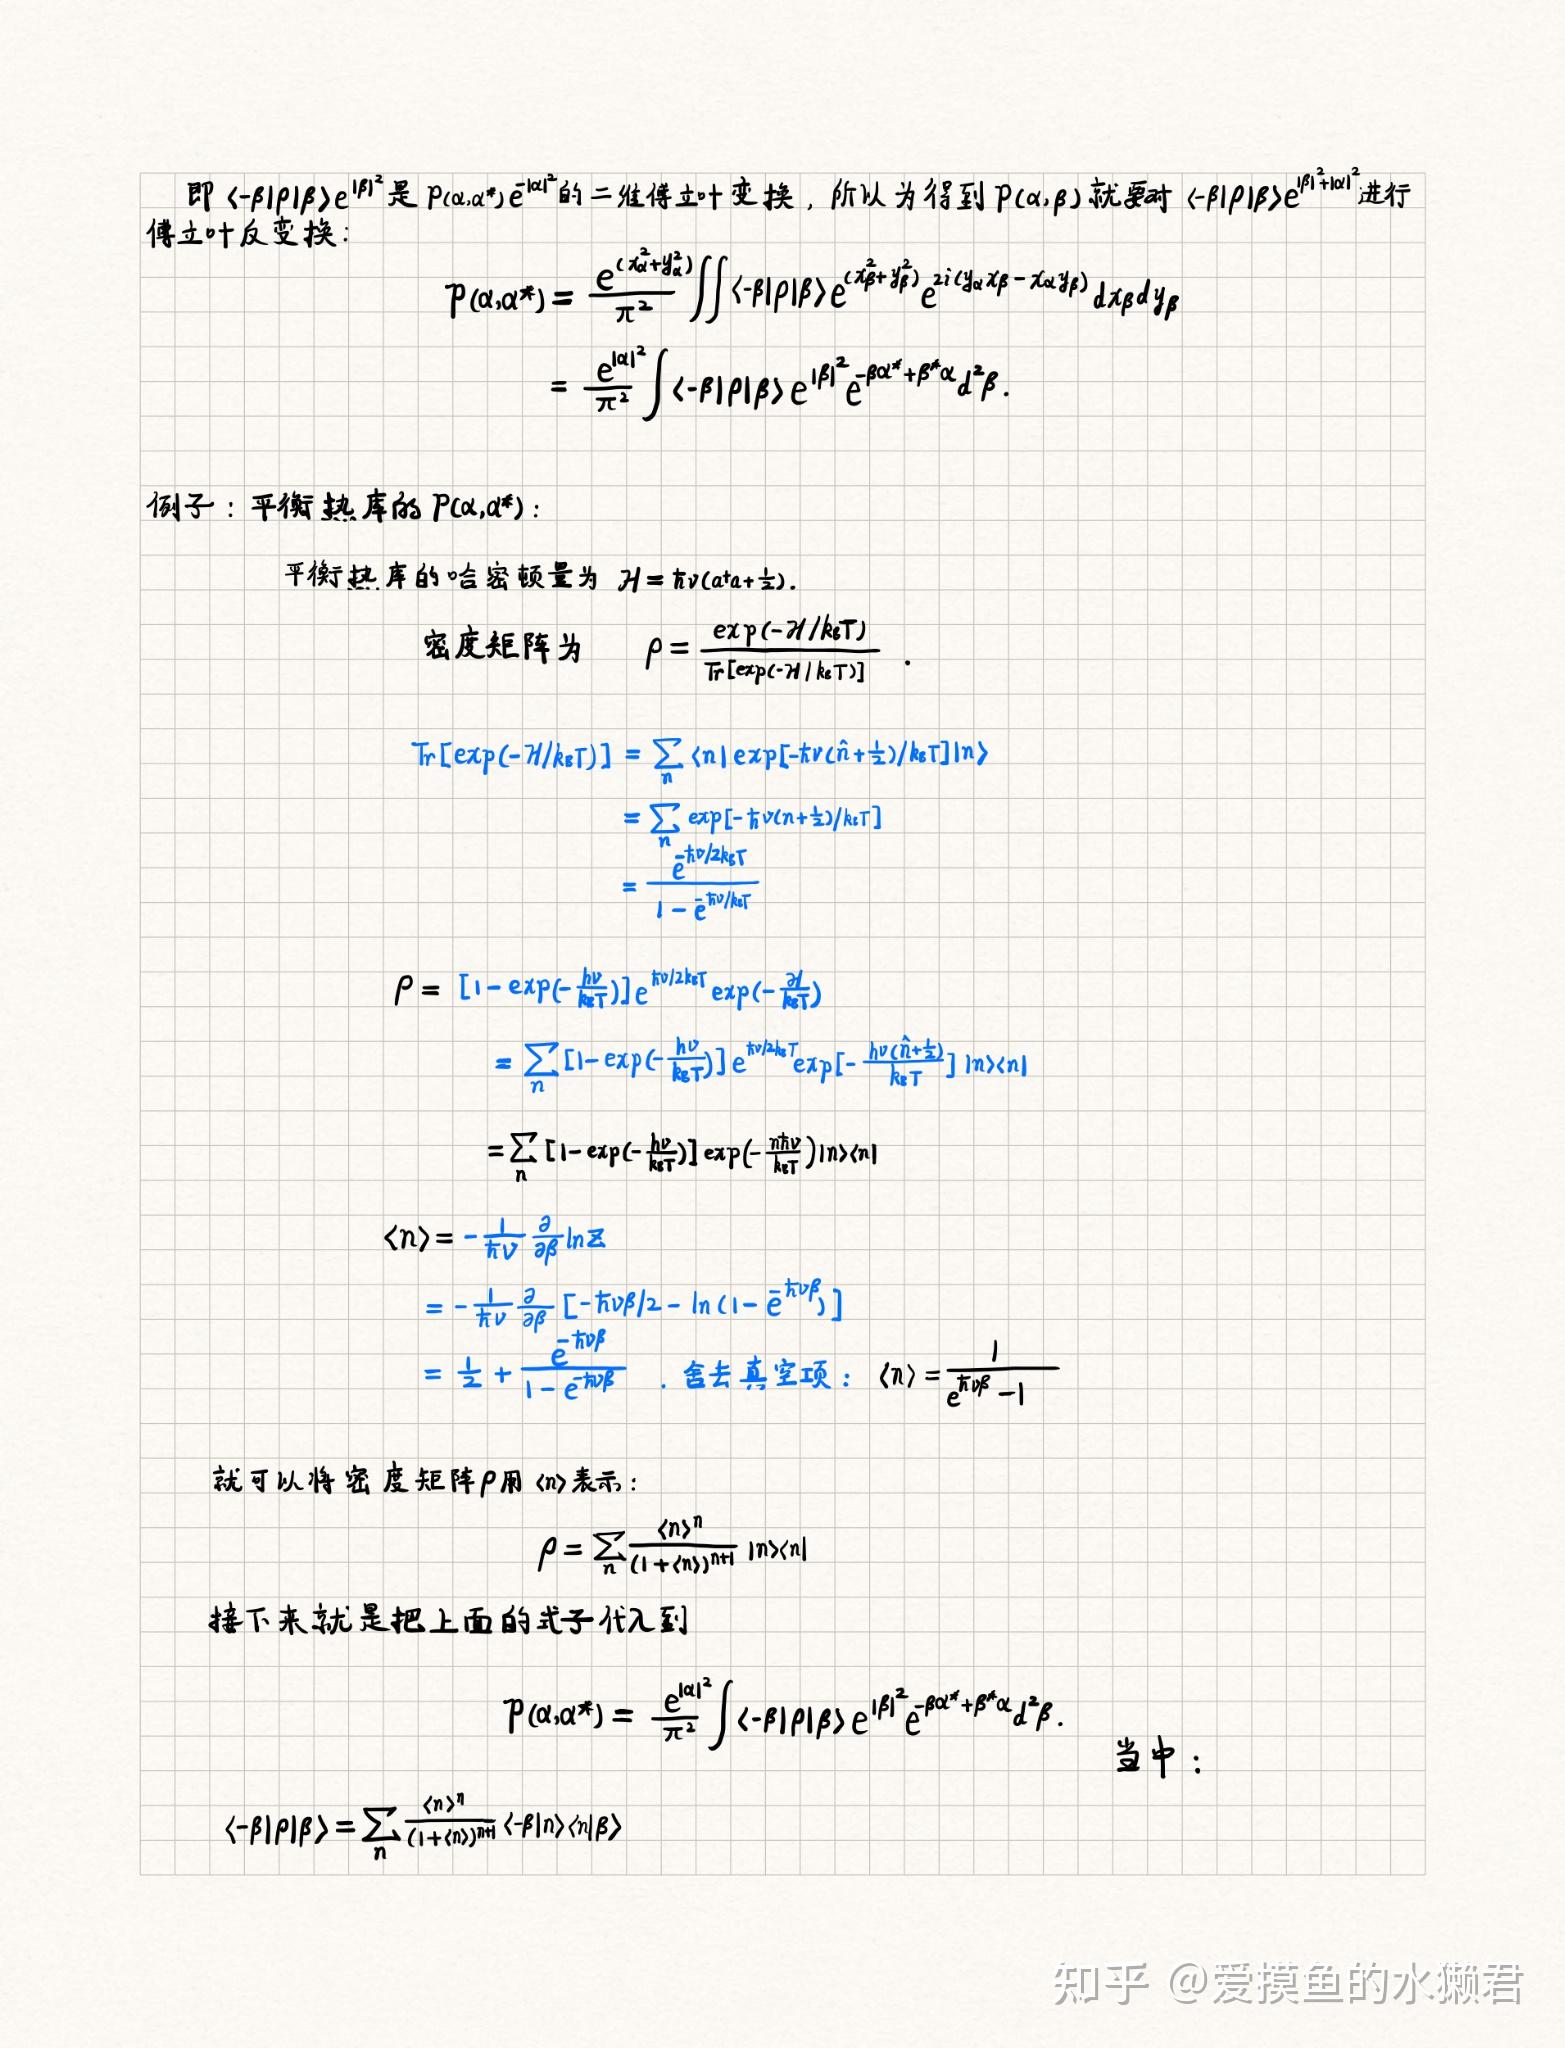 即 ⟨-β|ρ|β⟩e^{|β|²} 是 P(α,α*)e^{-|α|²} 的二维傅立叶变换，所以为得到 P(α,β) 就要对 ⟨-β|ρ|β⟩e^{|β|²+|α|²} 进行
傅立叶反变换：
P(α,α*) = \frac{e^{(x_α²+y_α²)}}{π²} ∬⟨-β|ρ|β⟩e^{(x_β²+y_β²)} e^{2i(y_α x_β - x_α y_β)} dx_β dy_β
= \frac{e^{|α|²}}{π²} ∫⟨-β|ρ|β⟩ e^{|β|²} e^{-βα*+β*α} d²β.
例子：平衡热库的 P(α,α*)：
平衡热库的哈密顿量为 ℋ = ħν(a†a+½).
密度矩阵为 ρ = \frac{exp(-ℋ/k_BT)}{Tr[exp(-ℋ/k_BT)]} .
Tr[exp(-ℋ/k_BT)] = ∑_n ⟨n|exp[-ħν(n̂+½)/k_BT]|n⟩
= ∑_n exp[-ħν(n+½)/k_BT]
= \frac{e^{-ħν/2k_BT}}{1 - e^{-ħν/k_BT}}
ρ = [1-exp(-\frac{hν}{k_BT})]e^{ħν/2k_BT} exp(-\frac{ℋ}{k_BT})
= ∑_n [1-exp(-\frac{hν}{k_BT})]e^{ħν/2k_BT} exp[-\frac{hν(n̂+½)}{k_BT}] |n⟩⟨n|
= ∑_n [1-exp(-\frac{hν}{k_BT})]exp(-\frac{nħν}{k_BT})|n⟩⟨n|
⟨n⟩ = -\frac{1}{ħν} \frac{∂}{∂β} lnZ
= -\frac{1}{ħν} \frac{∂}{∂β} [-ħνβ/2 - ln(1-e^{-ħνβ})]
= ½ + \frac{e^{-ħνβ}}{1-e^{-ħνβ}} . 舍去真空项：⟨n⟩ = \frac{1}{e^{ħνβ}-1}
就可以将密度矩阵ρ用⟨n⟩表示：
ρ = ∑_n \frac{⟨n⟩^n}{(1+⟨n⟩)^{n+1}} |n⟩⟨n|
接下来就是把上面的式子代入到
P(α,α*) = \frac{e^{|α|²}}{π²} ∫⟨-β|ρ|β⟩ e^{|β|²} e^{-βα*+β*α} d²β.
当中：
⟨-β|ρ|β⟩ = ∑_n \frac{⟨n⟩^n}{(1+⟨n⟩)^{n+1}} ⟨-β|n⟩⟨n|β⟩
知乎 @爱摸鱼的水獭君